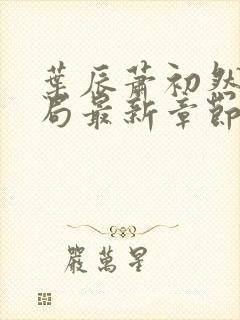 葉辰蕭初然
局最新章節
嚴萬星